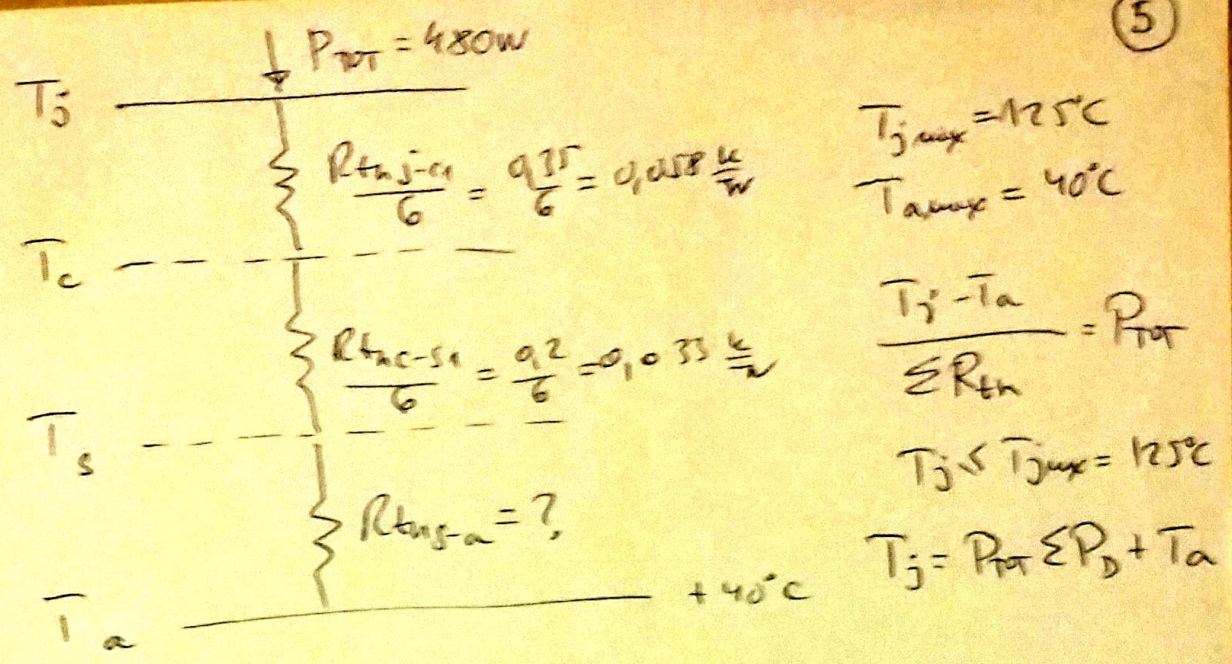 5
P_TOT = 480W
T_j
R_th j-c1 / 6 = 0,35 / 6 = 0,058 K/W
T_c
R_th c-s1 / 6 = 0,2 / 6 = 0,033 K/W
T_s
R_th s-a = ?
T_a + 40°C
T_j max = 125°C
T_a max = 40°C
T_j - T_a / ΣR_th = P_TOT
T_j ≤ T_j max = 125°C
T_j = P_TOT ΣP_D + T_a